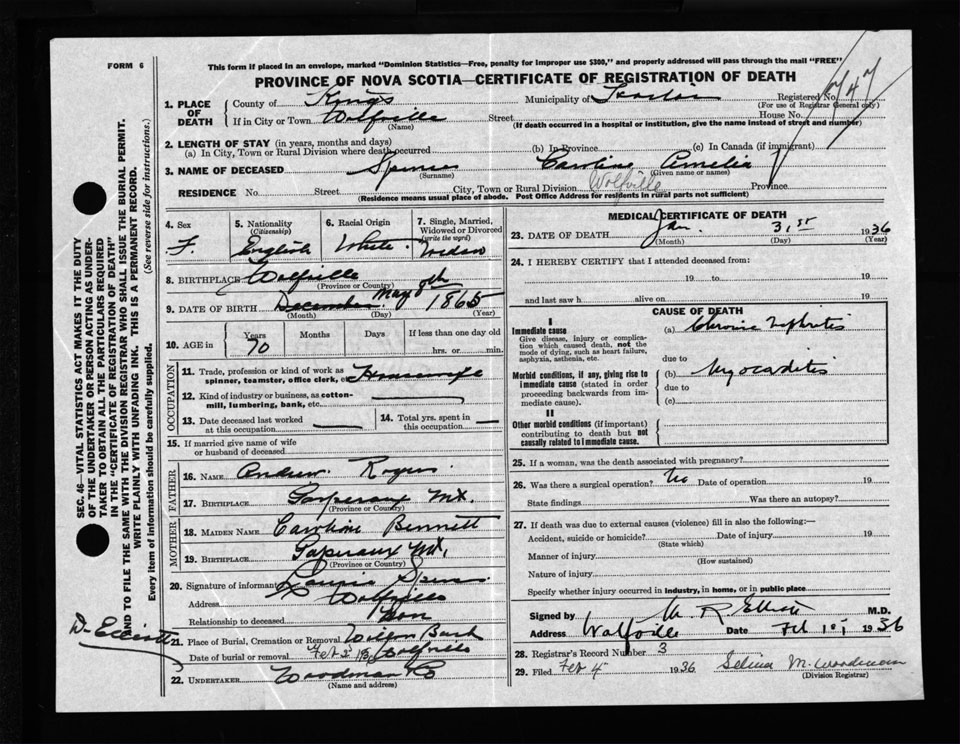 FORM 6
This form if placed in an envelope, marked "Dominion Statistics—Free, penalty for improper use $300," and properly addressed will pass through the mail "FREE"
PROVINCE OF NOVA SCOTIA—CERTIFICATE OF REGISTRATION OF DEATH
747
1. PLACE OF DEATH
County of Kings Municipality of Registered No.
(For use of Registrar General only)
If in City or Town Wolfville Street House No.
(Name) (If death occurred in a hospital or institution, give the name instead of street and number)
2. LENGTH OF STAY (in years, months and days)
(a) In City, Town or Rural Division where death occurred (b) In Province (c) In Canada (if immigrant)
3. NAME OF DECEASED Caroline Amelia
(Surname) (Given name or names)
RESIDENCE No. Street City, Town or Rural Division Wolfville Province
(Residence means usual place of abode. Post Office Address for residents in rural parts not sufficient)
4. Sex
F.
5. Nationality
(Citizenship)
English
6. Racial Origin
White
7. Single, Married, Widowed or Divorced
(write the word)
Widow
8. BIRTHPLACE Wolfville
(Province or Country)
9. DATE OF BIRTH December May 8th 1865
(Month) (Day) (Year)
10. AGE in Years Months Days If less than one day old
70 hrs. or min.
OCCUPATION
11. Trade, profession or kind of work as spinner, teamster, office clerk, etc. Housewife
12. Kind of industry or business, as cotton-mill, lumbering, bank, etc.
13. Date deceased last worked at this occupation
14. Total yrs. spent in this occupation
15. If married give name of wife or husband of deceased
FATHER
16. NAME Andrew Rogers
17. BIRTHPLACE Gasperaux Mt.
(Province or Country)
MOTHER
18. MAIDEN NAME Caroline Bennett
19. BIRTHPLACE Gaperaux Mt,
(Province or Country)
20. Signature of informant
Address Wolfville
Relationship to deceased Son
21. Place of Burial, Cremation or Removal
Date of burial or removal Feb 3 Wolfville
22. UNDERTAKER Woodman Co
(Name and address)
MEDICAL CERTIFICATE OF DEATH
23. DATE OF DEATH Jan. 31st 1936
(Month) (Day) (Year)
24. I HEREBY CERTIFY that I attended deceased from:
19 to 19
and last saw h alive on 19
CAUSE OF DEATH
I
Immediate cause
Give disease, injury or complication which caused death, not the mode of dying, such as heart failure, asphyxia, asthenia, etc.
(a) Chronic Nephritis
due to
Morbid conditions, if any, giving rise to immediate cause (stated in order proceeding backwards from immediate cause).
(b) Myocarditis
due to
(c)
II
Other morbid conditions (if important) contributing to death but not causally related to immediate cause.
25. If a woman, was the death associated with pregnancy?
26. Was there a surgical operation? No Date of operation 19
State findings Was there an autopsy?
27. If death was due to external causes (violence) fill in also the following:—
Accident, suicide or homicide? Date of injury 19
(State which)
Manner of injury
(How sustained)
Nature of injury
Specify whether injury occurred in Industry, in home, or in public place
Signed by M. R. Elliott M.D.
Address Wolfville Date Feb 1st 1936
28. Registrar's Record Number 3
29. Filed Feb 4 1936 Selina M. Woodman
(Division Registrar)
SEC. 46—VITAL STATISTICS ACT MAKES IT THE DUTY
OF THE UNDERTAKER OR PERSON ACTING AS UNDER-
TAKER TO OBTAIN ALL THE PARTICULARS REQUIRED
IN THE "CERTIFICATE OF REGISTRATION OF DEATH"
AND TO FILE THE SAME WITH THE DIVISION REGISTRAR WHO SHALL ISSUE THE BURIAL PERMIT.
WRITE PLAINLY WITH UNFADING INK. THIS IS A PERMANENT RECORD.
Every item of information should be carefully supplied. (See reverse side for instructions.)
D. Elliott